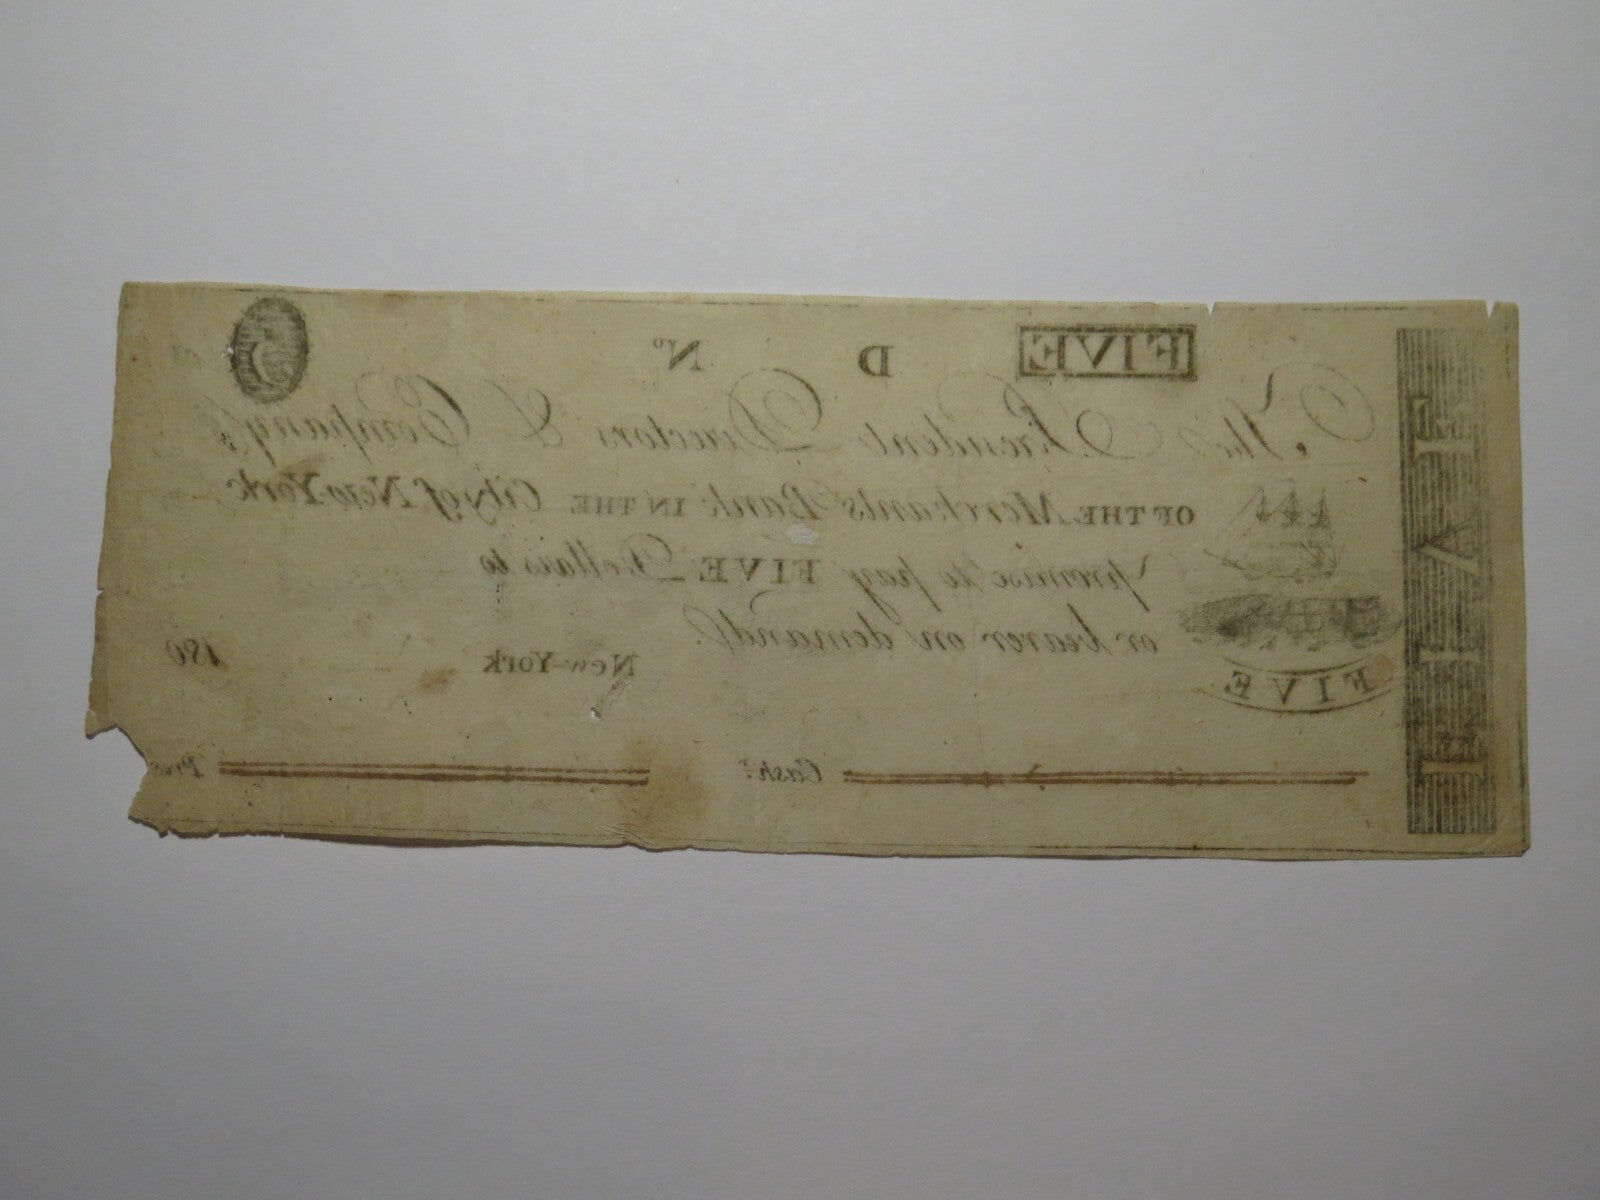 FIVE D Nº 5
The President Directors & Company
OF THE Merchants Bank IN THE City of New-York
promise to pay FIVE Dollars to
or bearer on demand.
New-York 180
FIVE
Cash.r Pres.t
FIVE